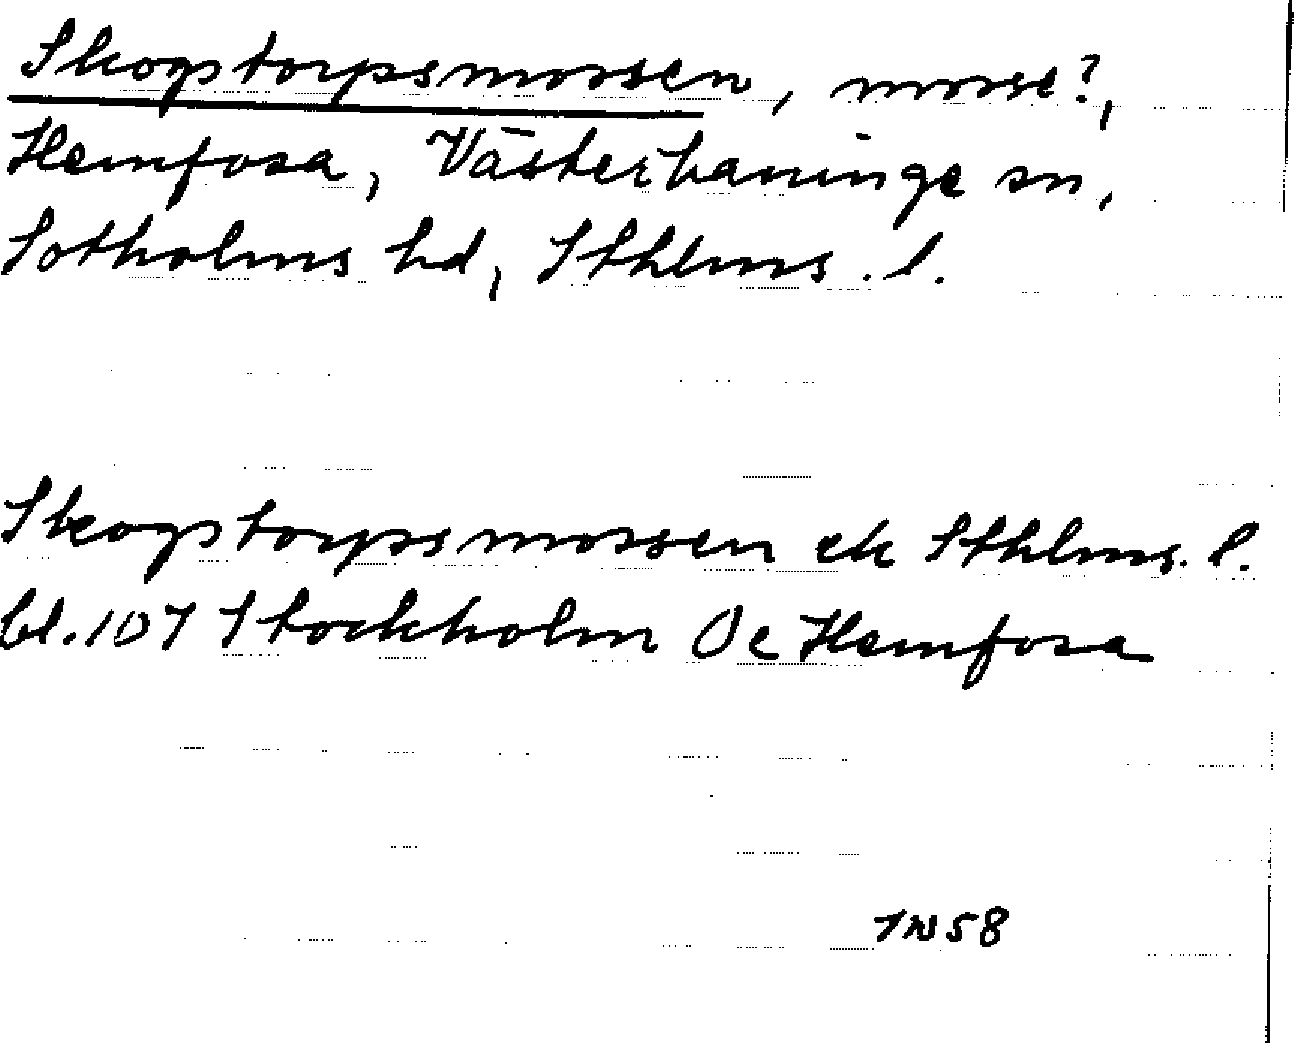 Skogstorpsmossen, mosse?,
Hemfosa, Västerhaninge sn,
Sotholms hd, Sthlms. l.
Skogstorpsmossen ek Sthlms. l.
bl. 107 Stockholm Oc Hemfosa
TN58